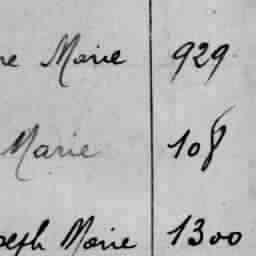 ne Marie 929
Marie 108
oseph Marie 1300